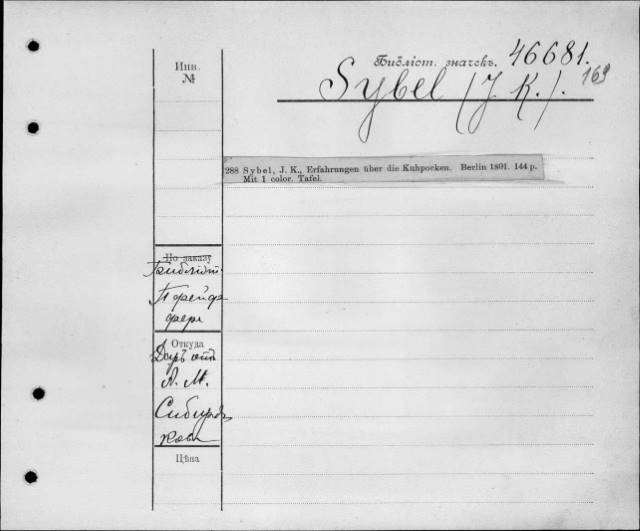 Инв.
№
Библіот. значекъ. 46681.
169
Sybel (J. K.).
288 Sybel, J. K., Erfahrungen über die Kuhpocken. Berlin 1801. 144 p.
Mit 1 color. Tafel.
По заказу
Библіот.
Пфейф
фера
Откуда
Даръ отъ
А. М.
Сибиря
кова
Цѣна